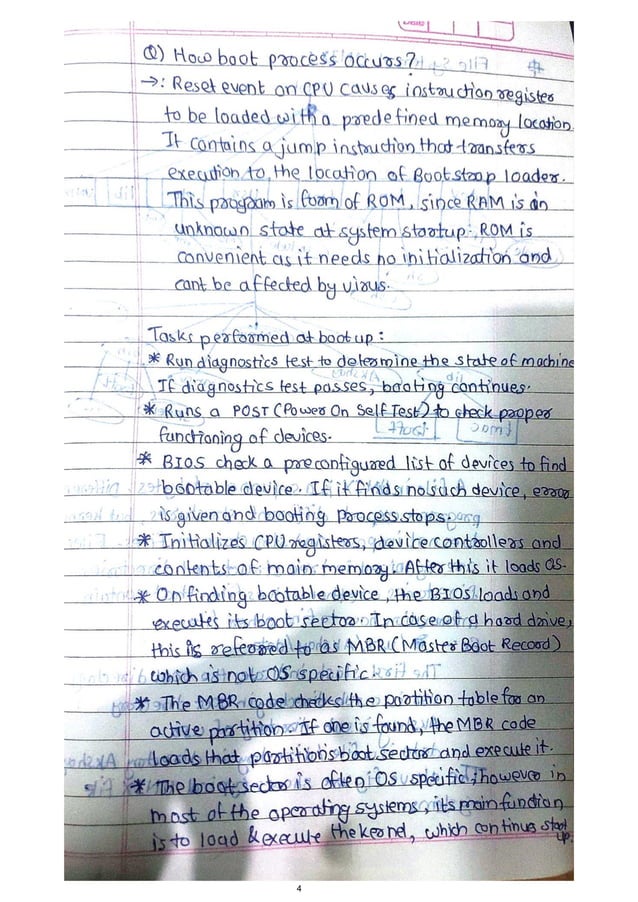 Date
Q) How boot process occurs?
→: Reset event on CPU causes instruction register
to be loaded with a predefined memory location.
It contains a jump instruction that transfers
execution to the location of Bootstrap loader.
This program is form of ROM, since RAM is in
unknown state at system startup. ROM is
convenient as it needs no initialization and
cant be affected by virus.
Tasks performed at boot up :
* Run diagnostics test to determine the state of machine
If diagnostics test passes, booting continues.
* Runs a POST (Power On Self Test) to check proper
functioning of devices.
* BIOS check a preconfigured list of devices to find
bootable device. If it finds no such device, error
is given and booting process stops.
* Initializes CPU registers, device controllers and
contents of main memory. After this it loads OS.
* On finding bootable device, the BIOS loads and
executes its boot sector. In case of a hard drive,
this is referred to as MBR (Master Boot Record)
which is not OS specific.
* The MBR code checks the partition table for an
active partition. If one is found, the MBR code
loads that partition's boot sector and execute it.
* The boot sector is often OS specific, however in
most of the operating systems, its main function
is to load & execute the kernel, which continues start
up.
4